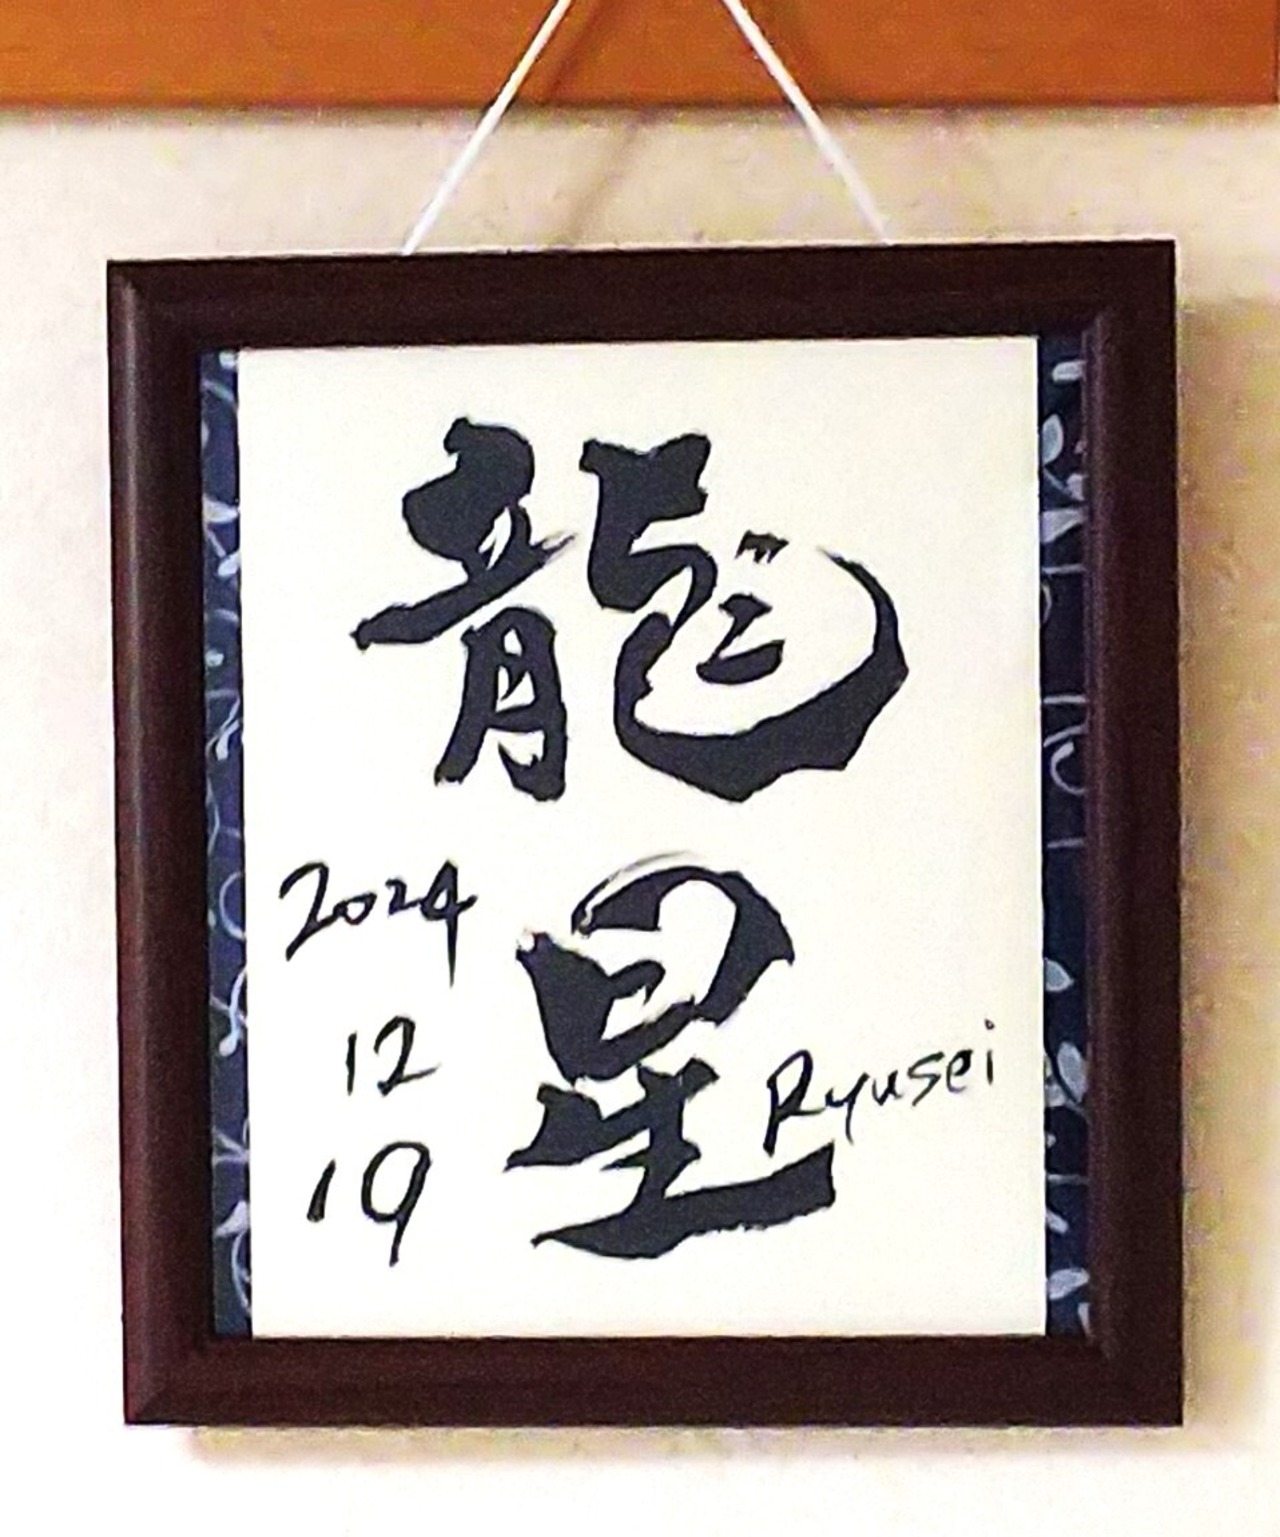 龍星
Ryusei
2024
12
19